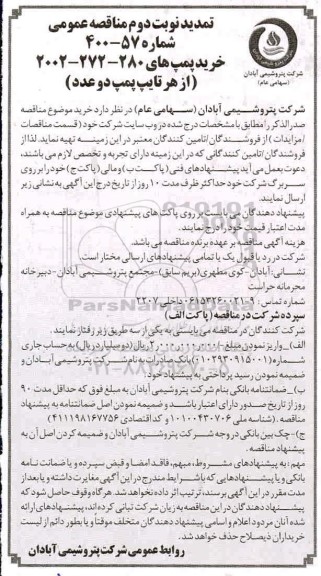 تمدید نوبت دوم مناقصه عمومی
شماره ۵۷-۴۰۰
خرید پمپ های ۲۸۰-۲۷۲-۲۰۰۲
(از هر تایپ پمپ دو عدد)
شرکت پتروشیمی آبادان
(سهامی عام)
شرکت پتروشیمی آبادان (سهامی عام) در نظر دارد خرید موضوع مناقصه
صدر الذکر را مطابق با مشخصات درج شده در وب سایت شرکت خود (قسمت مناقصات
/ مزایدات) از فروشندگان/تامین کنندگان معتبر در این زمینه تهیه نماید. لذا از
فروشندگان/تامین کنندگانی که در این زمینه دارای تجربه و تخصص لازم می باشند،
دعوت بعمل می آید پیشنهادهای فنی (پاکت ب) و مالی (پاکت ج) خود را بر روی
سربرگ شرکت خود حداکثر ظرف مدت ۱۰ روز از تاریخ درج این آگهی به نشانی زیر
ارسال نمایند.
پیشنهاد دهندگان می بایست بر روی پاکت های پیشنهادی موضوع مناقصه به همراه
مدت اعتبار قیمت خود را درج نمایند.
هزینه آگهی مناقصه بر عهده برنده مناقصه می باشد.
شرکت در رد یا قبول یک یا تمامی پیشنهادهای ارسالی مختار است.
نشانی: آبادان-کوی مطهری (بریم سابق)-مجتمع پتروشیمی آبادان-دبیرخانه
محرمانه حراست
شماره تماس: ۹-۰۶۱۵۳۲۶۰۰۲۱ داخلی ۲۲۰۷
سپرده شرکت در مناقصه (پاکت الف)
شرکت کنندگان در مناقصه می بایستی به یکی از سه طریق زیر رفتار نمایند.
الف)-واریز نمودن مبلغ ریال (دو میلیارد ریال) به حساب جاری
شماره (۰۱۰۲۹۳۰۹۱۵۰۰۱) بانک صادرات به نام شرکت پتروشیمی آبادان و
ضمیمه نمودن رسید پرداختی به پیشنهاد خود.
ب)-ضمانتنامه بانکی بنام شرکت پتروشیمی آبادان به مبلغ فوق که حداقل مدت ۹۰
روز از تاریخ صدور دارای اعتبار باشد و ضمیمه نمودن اصل ضمانتنامه به پیشنهاد
مناقصه. (شناسه ملی ۱۰۱۰۰۴۳۰۷۰۶ و کد اقتصادی ۴۱۱۱۹۸۱۶۷۷۵۶)
ج)-چک بین بانکی در وجه شرکت پتروشیمی آبادان و ضمیمه کردن اصل آن به
پیشنهاد مناقصه.
مهم: به پیشنهادهای مشروط، مبهم، فاقد امضا و فیش سپرده و یا ضمانت نامه
بانکی و یا پیشنهادهایی که با شرایط مندرج در این آگهی مغایرت داشته و یا بعد از
مدت مقرر در این آگهی برسند، ترتیب اثر داده نخواهد شد. هرگاه وقوف حاصل شود که
پیشنهاد دهندگان در این مناقصه به زیان شرکت تبانی کرده اند، پیشنهادهای ارائه
شده آنان مردود اعلام و اسامی پیشنهاد دهندگان متخلف موقتاً و یا بطور دائم از لیست
خریداران ذیصلاح حذف خواهد شد.
روابط عمومی شرکت پتروشیمی آبادان